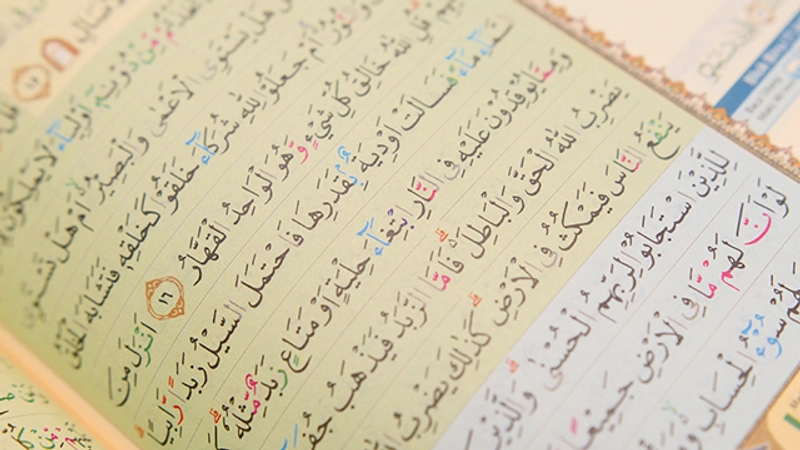 مِّنْ دُوْنِهٖٓ اَوْلِيَاۤءَ لَا يَمْلِكُوْنَ
هَلْ يَسْتَوِى الْاَعْمٰى وَالْبَصِيْرُ ەۙ اَمْ هَلْ تَسْتَوِى
اَمْ جَعَلُوْا لِلّٰهِ شُرَكَاۤءَ خَلَقُوْا كَخَلْقِهٖ فَتَشَابَهَ الْخَلْقُ
قُلِ اللّٰهُ خَالِقُ كُلِّ شَيْءٍ وَّهُوَ الْوَاحِدُ الْقَهَّارُ ١٦ اَنْزَلَ مِنَ
السَّمَاۤءِ مَاۤءً فَسَالَتْ اَوْدِيَةٌ ۢبِقَدَرِهَا فَاحْتَمَلَ السَّيْلُ زَبَدًا رَّابِيًا ۗ
وَمِمَّا يُوْقِدُوْنَ عَلَيْهِ فِى النَّارِ ابْتِغَاۤءَ حِلْيَةٍ اَوْ مَتَاعٍ زَبَدٌ مِّثْلُهٗ ۗ
يَضْرِبُ اللّٰهُ الْحَقَّ وَالْبَاطِلَ ەۗ فَاَمَّا الزَّبَدُ فَيَذْهَبُ
يَنْفَعُ النَّاسَ فَيَمْكُثُ فِى الْاَرْضِۗ كَذٰلِكَ يَضْرِبُ
لِلَّذِيْنَ اسْتَجَابُوْا لِرَبِّهِمُ الْحُسْنٰىۗ وَالَّذِيْنَ
لَوْ اَنَّ لَهُمْ مَّا فِى الْاَرْضِ جَمِيْعًا
سُوْۤءُ الْحِسَابِ